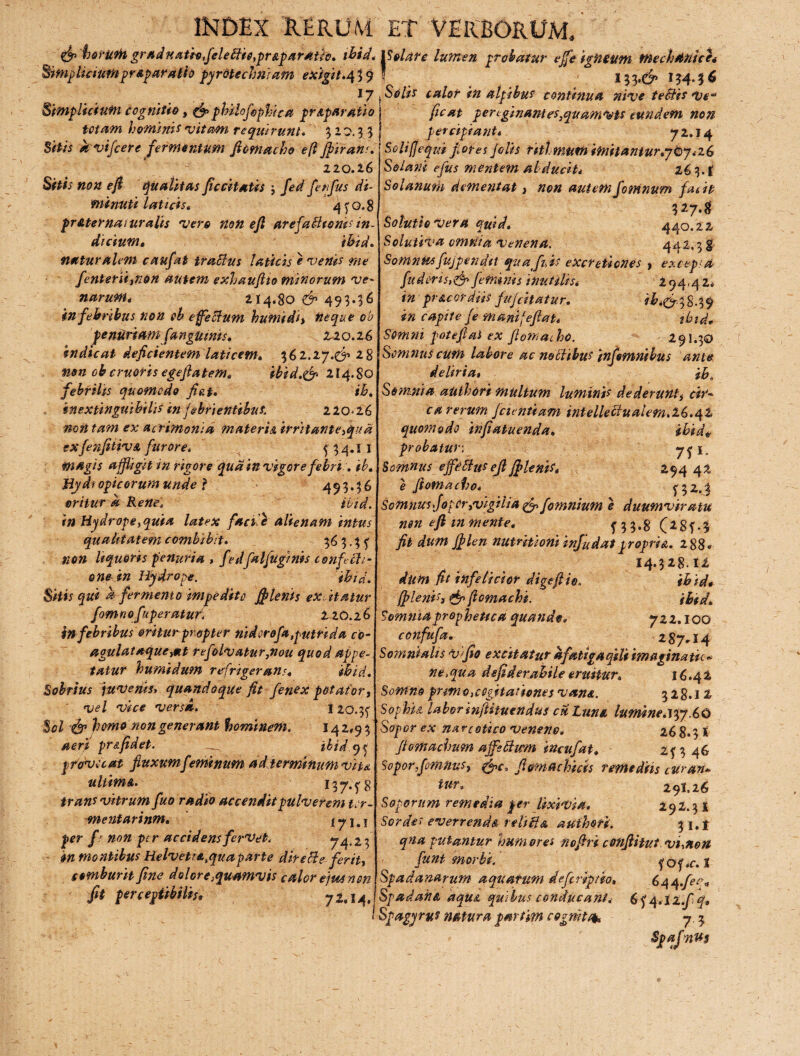 INDEX RERUM ET VERBORUM.
& horum graduatio, selectio, præparatio. ibid.
Simplicium præparatio pyrotechniam exigit. 459
17
Simplicium cognitio, & philosophica præparatio
totam hominis vitam requirunt. 320.33
Sitis à viscere fermentum stomacho est spirans.
220.26
Sitis non est qualitas siccitatis; sed sensus di-
minuti laticis. 450.8
præternaturalis vero non est arefactionis in-
dicium. ibid.
naturalem causat tractus laticis è venis me
senterii, non autem exhaustio minorum ve-
narum. 214.80 & 493.36
in febribus non ob effectum humidi, neque ob
penuriam sanguinis. 220.26
indicat deficientem laticem. 362.27.& 28
non ob cruoris egestatem. ibid.& 214.80
febrilis quomodo fiat. ib.
inextinguibilis in febrientibus. 220.26
non tam ex acrimonia materiæ irritante, quà
ex sensitivæ furore. 534.11
magis affligit in rigore quà in vigore febri. ib.
Hydropicorum unde? 493.36
oritur à Rene. ibid.
in Hydrope, quia latex facilè alienam intus
qualitatem combibit. 363.35
non liquoris penuria, sed salsuginis confecti-
one in Hydrope. ibid.
Sitis qui à fermento impedito splenis excitatur
somno superatur. 220.26
in febribus oritur propter nidorosa, putrida co-
agulataque, ut resolvatur, nou quod appe-
tatur humidum refrigerans. ibid.
Sobrius juvenis, quandoque fit senex potator,
vel vice versâ. 120.35
Sol & homo non generant hominem. 142.93
aeri præsidet. ibid 95
provocat fluxum seminum ad terminum vitæ
ultimæ. 137.58
trans vitrum suo radio accendit pulverem tor-
mentarinm. 171.1
per se non per accidens fervet. 74.23
in montibus Helvetiæ, qua parte directe ferit,
comburit sine dolore, quamvis calor ejus non
fit perceptibilis. 72.14.
Solare lumen probatur esse igneum mechanicè.
133.& 134.36
Solis calor in alpibus continua nive tectis ve-
ficat pereginantes, quamvis eundem non
percipiant. 72.14
Solissequi flores solis ritl mum imitantur. 707.26
Solani esus mentem abducit. 263.1
Solanum dementat, non autem somnum facit
327.8
Solutio vera quid. 440.22
Solutiva omnia venena. 442.38
Somnus suspendit qua suis excretiones, excepta
suderis, & seminis inutilis. 294.42.
in præcordiis suscitatur. ib.& 38.39
in capite se manifestat. ibid.
Somni potestas ex stomacho. 291.30
Somnus cum labore ac noctibus insomnibus ante
deliria. ib.
Somnia authori multum luminis dederunt, cir-
ca rerum scientiam intellectualem. 26.42
quomodo instatuenda. ibid.
probatur: 751.
Somnus effectus est splenis. 294 42
è stomacho. 532.3
Somnus, sopor, vigilia & somnium è duumviratu
non est in mente. 533.8 (285.3
fit dum splen nutritioni insudat propriæ. 288.
14.328.12
dum fit infelicior digestio. ibid.
splenis, & stomachi. ibid.
Somnia prophetica quando. 722.100
confusa. 287.14
Somnialis visio excitatur à fatiga quili imaginatio-
ne, qua desiderabile eruitur. 16.42
Somno primo, cogitationes vanæ. 328.12
Sophiæ labor instituendus cū Lunæ lumine. 137.60
Sopor ex narcotico veneno. 268.31
stomachum affectum incusat. 253 46
Sopor, somnus, &c. stomachicis remediis curan-
tur. 291.26
Soporum remedia per lixivia. 292.31
Sordes everrendæ relictæ authori. 31.1
qua putantur humores nostri constitutivi, non
sunt morbi. 505.c.1
Spadanarum aquarum descriptio. 644.seq.
Spadanæ aquæ quibus conducant. 654.12.sq.
Spagyrus natura partim cognita. 7 3
Spasmus